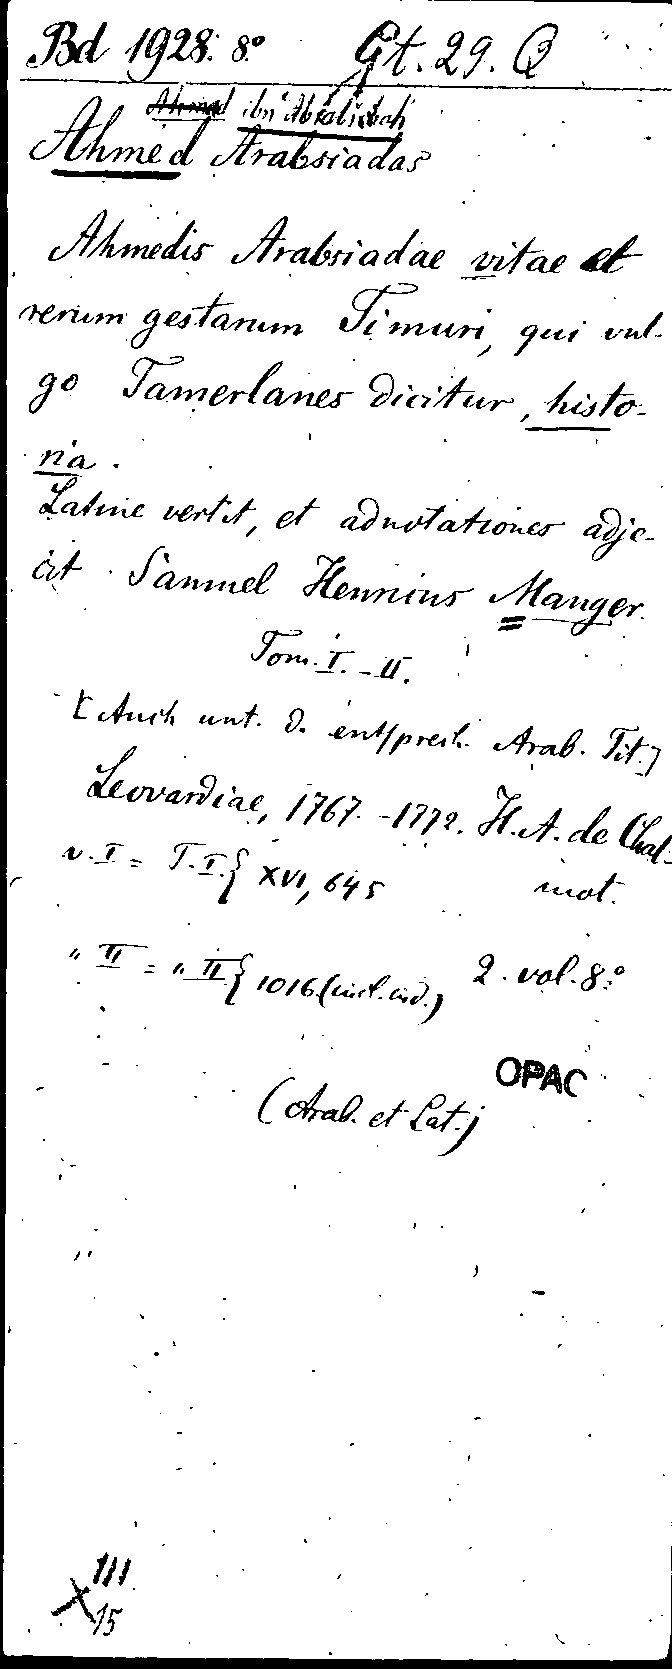 Bd 1928. 8.° Gt. 29. Q
Ahmad ibn
Ahmed Arabsiadas
Ahmedis Arabsiadae vitae et
rerum gestarum Timuri, qui vul-
go Tamerlanes dicitur, histo-
ria.
Latine vertit, et adnotationes adje-
cit Samuel Henricus Manger.
Tom. I. - II.
[Auch unt. d. entsprech. Arab. Tit.]
Leovardiae, 1767. - 1772. H. A. de Chal-
mot.
v. I = T. I. { XVI, 645
" II = " II { 1016 (incl. ind.) 2. vol. 8.°
OPAC
(Arab. et Lat.)
III
X 15